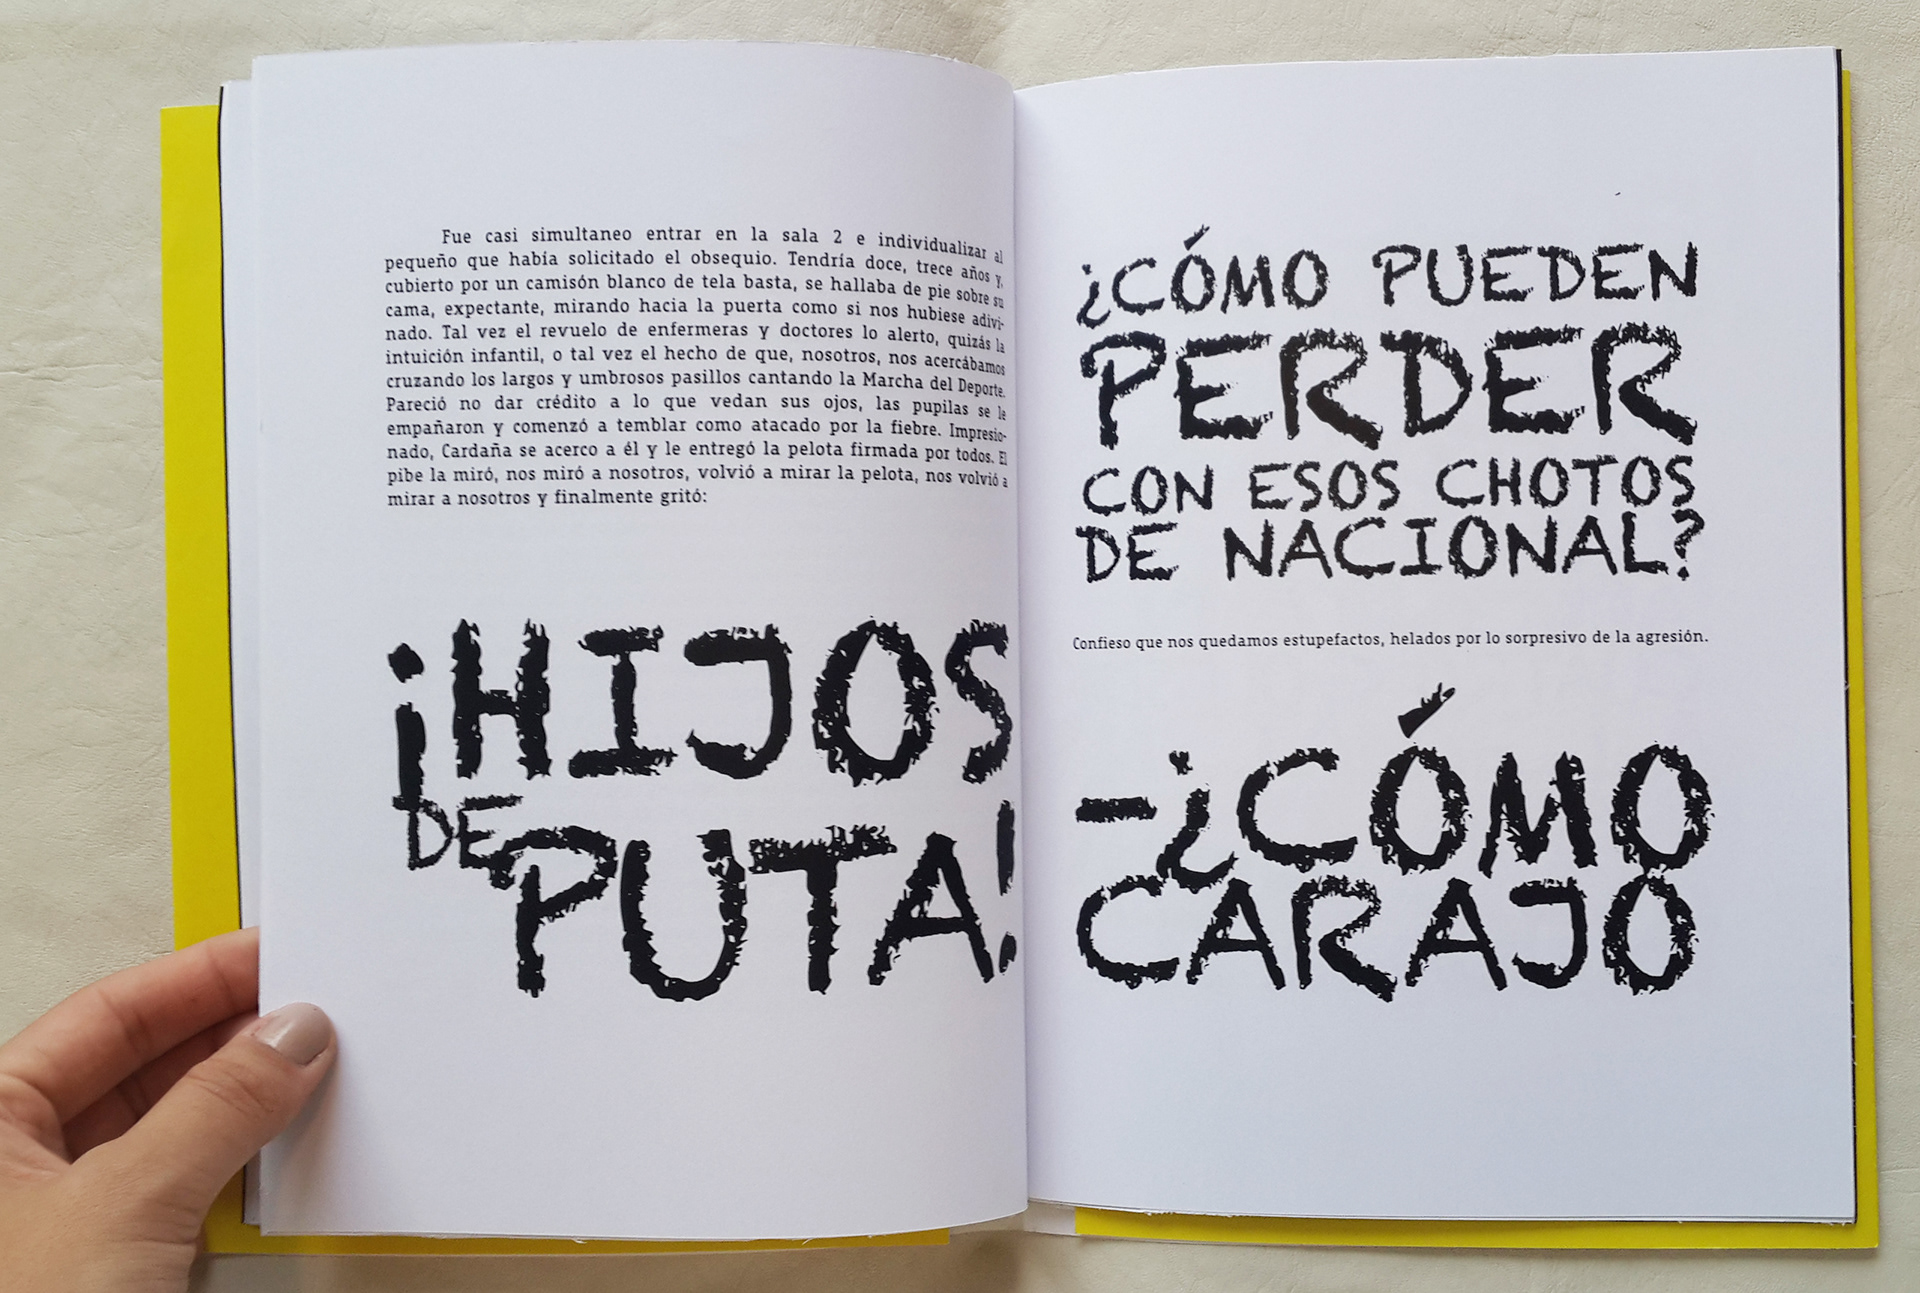 Fue casi simultaneo entrar en la sala 2 e individualizar al
pequeño que había solicitado el obsequio. Tendría doce, trece años y,
cubierto por un camisón blanco de tela basta, se hallaba de pie sobre su
cama, expectante, mirando hacia la puerta como si nos hubiese adivi-
nado. Tal vez el revuelo de enfermeras y doctores lo alerto, quizás la
intuición infantil, o tal vez el hecho de que, nosotros, nos acercábamos
cruzando los largos y umbrosos pasillos cantando la Marcha del Deporte.
Pareció no dar crédito a lo que vedan sus ojos, las pupilas se le
empañaron y comenzó a temblar como atacado por la fiebre. Impresio-
nado, Cardaña se acerco a él y le entregó la pelota firmada por todos. El
pibe la miró, nos miró a nosotros, volvió a mirar la pelota, nos volvió a
mirar a nosotros y finalmente gritó:
¡HIJOS
DE
PUTA!
¿CÓMO PUEDEN
PERDER
CON ESOS CHOTOS
DE NACIONAL?
Confieso que nos quedamos estupefactos, helados por lo sorpresivo de la agresión.
-¿CÓMO
CARAJO